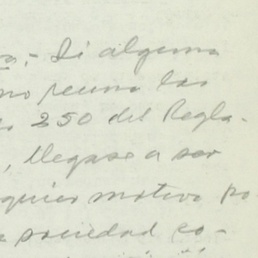 .- Si alguna
no reuna las
250 del Regla-
, llegase a ser
quier motivo po
sociedad co-